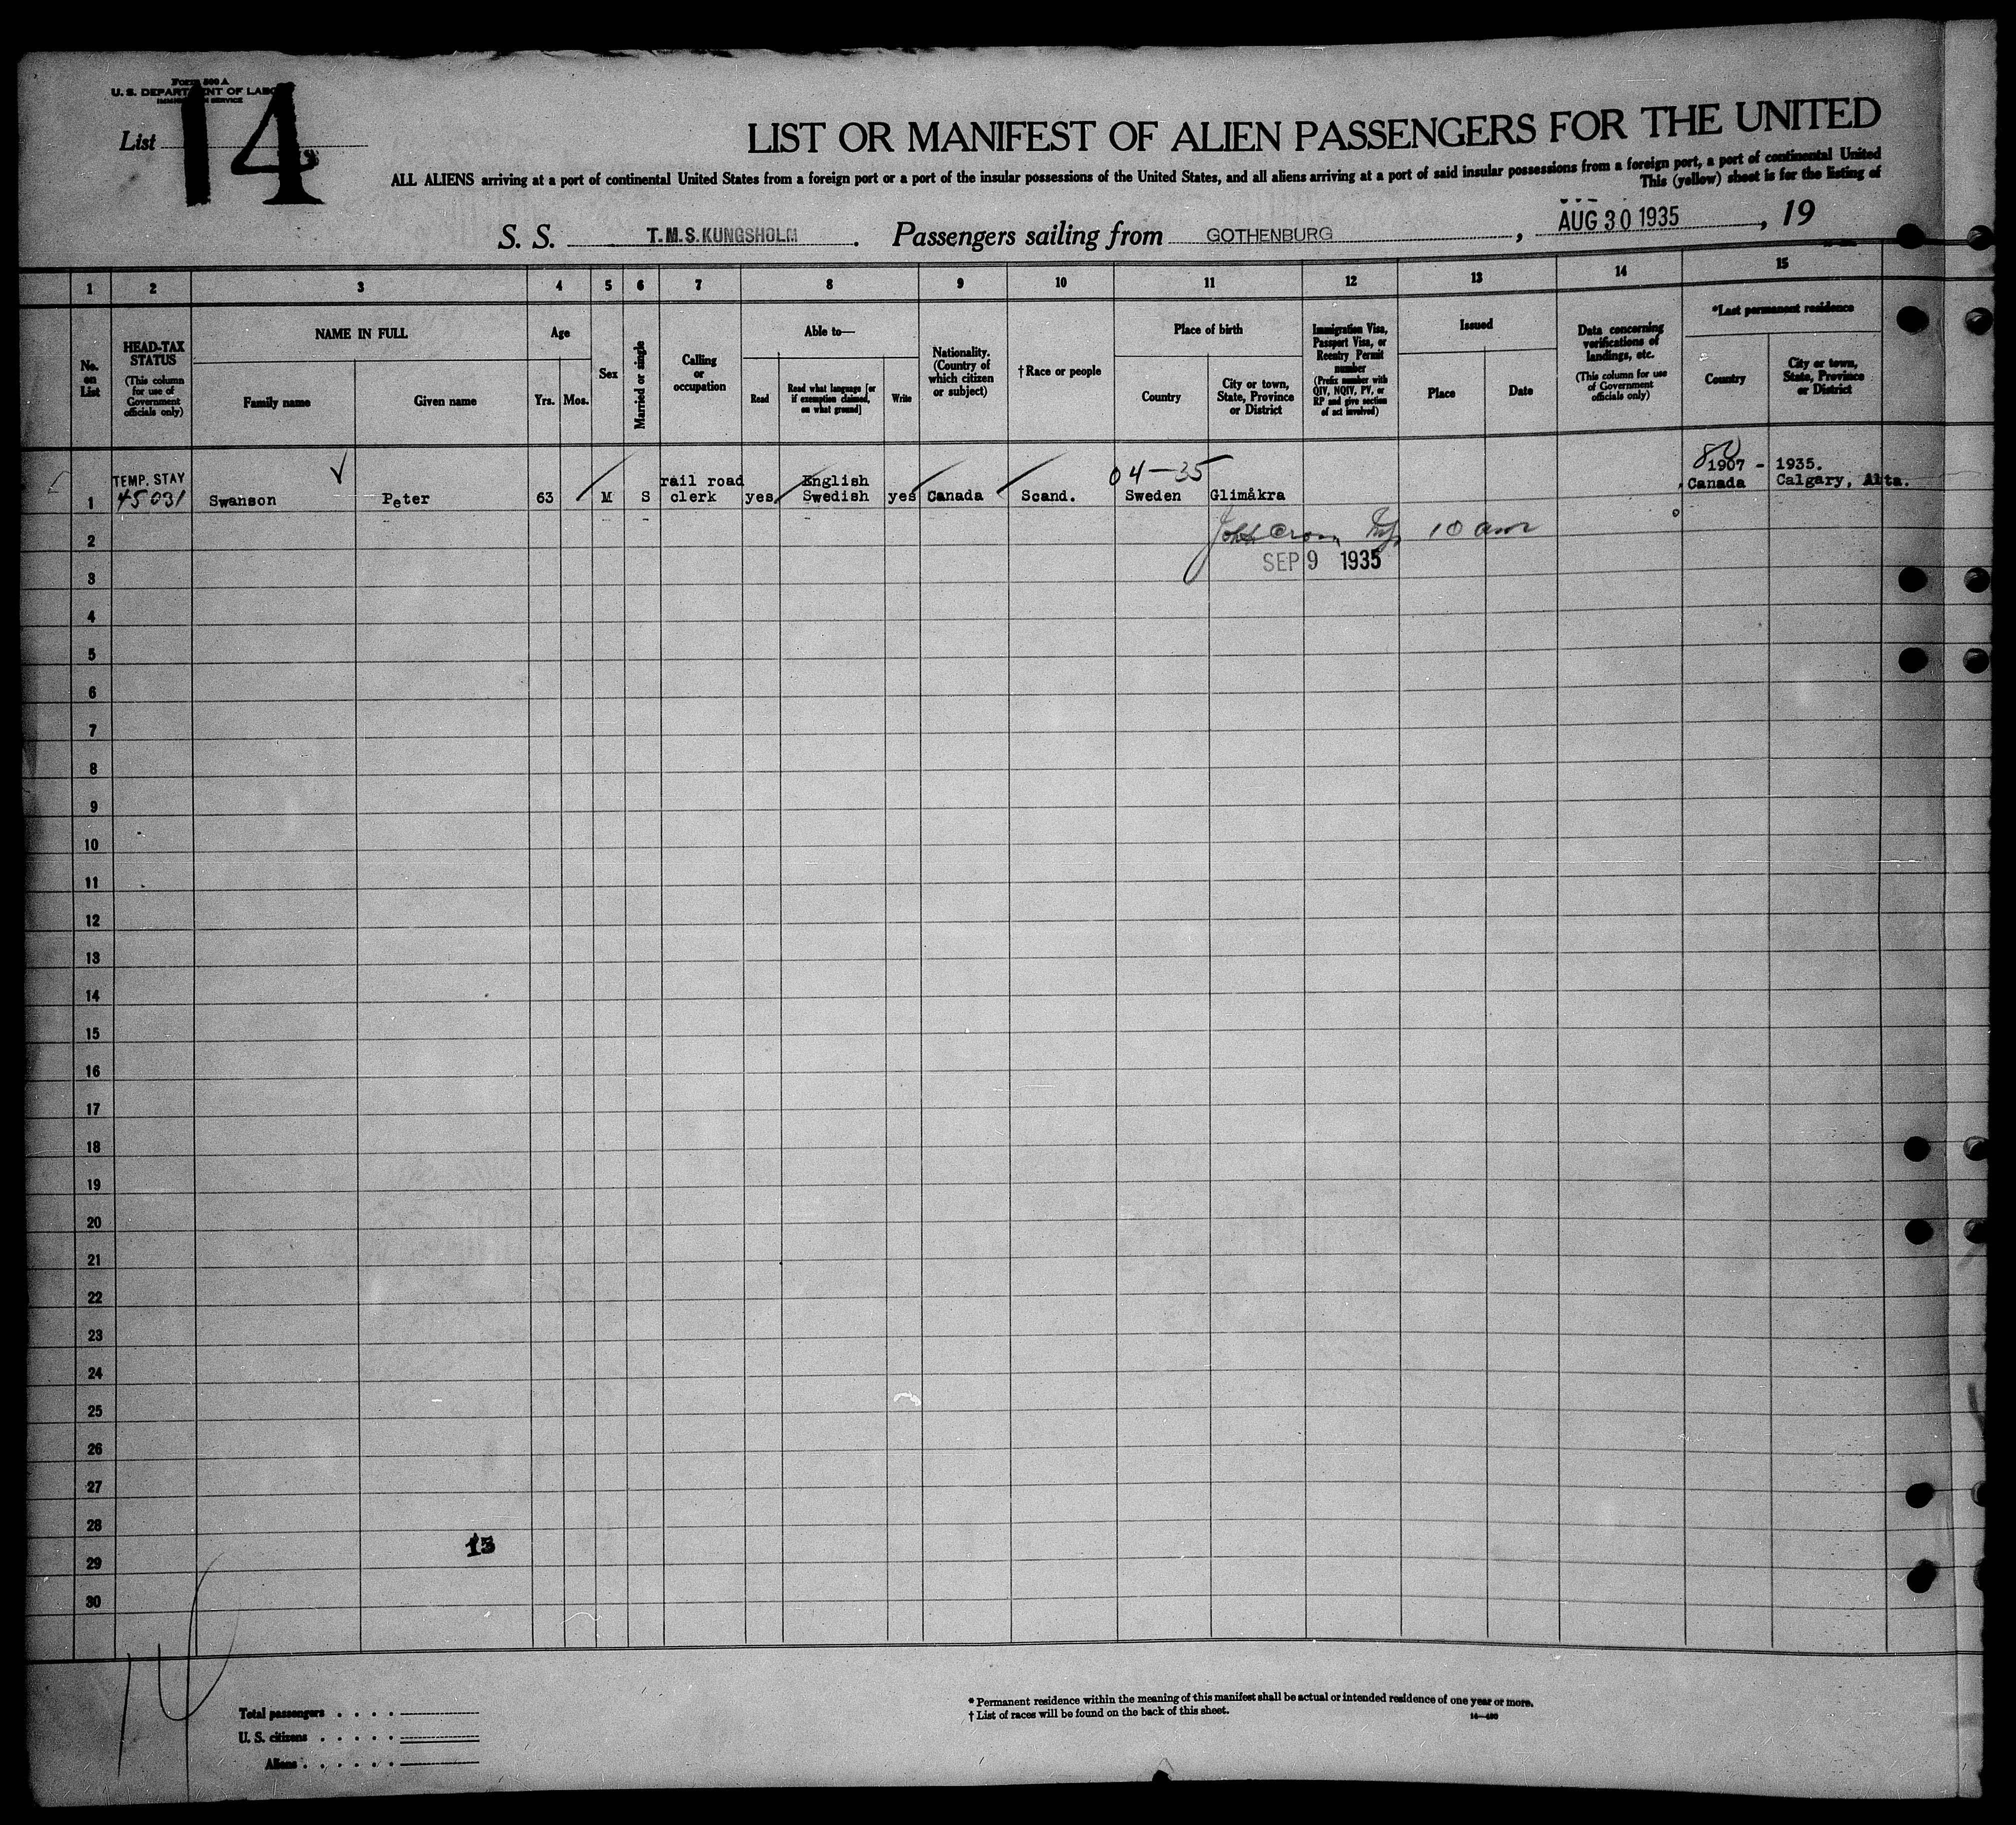 Form 500 A
U. S. DEPARTMENT OF LABOR
IMMIGRATION SERVICE
List 14
LIST OR MANIFEST OF ALIEN PASSENGERS FOR THE UNITED
ALL ALIENS arriving at a port of continental United States from a foreign port or a port of the insular possessions of the United States, and all aliens arriving at a port of said insular possessions from a foreign port, a port of continental United
This (yellow) sheet is for the listing of
S. S. T.M.S. KUNGSHOLM . Passengers sailing from GOTHENBURG , AUG 30 1935 , 19
1 2 3 4 5 6 7 8 9 10 11 12 13 14 15
No. on List
HEAD-TAX STATUS
(This column for use of Government officials only)
NAME IN FULL
Family name
Given name
Age
Yrs.
Mos.
Sex
Married or single
Calling or occupation
Able to—
Read
Read what language [or if exemption claimed, on what ground]
Write
Nationality. (Country of which citizen or subject)
†Race or people
Place of birth
Country
City or town, State, Province or District
Immigration Visa, Passport Visa, or Reentry Permit number
(Prefix number with QIV, NQIV, PV, or RP and give section of act involved)
Issued
Place
Date
Data concerning verifications of landings, etc.
(This column for use of Government officials only)
*Last permanent residence
Country
City or town, State, Province or District
TEMP. STAY rail road English 04-35 1907 - 1935.
1 45031 Swanson Peter 63 M S clerk yes Swedish yes Canada Scand. Sweden Glimåkra Canada Calgary, Alta.
2 John 10 am
3 SEP 9 1935
4
5
6
7
8
9
10
11
12
13
14
15
16
17
18
19
20
21
22
23
24
25
26
27
28
13
29
30
14
Total passengers . . . .
U. S. citizens . . . . .
Aliens . . . . . .
* Permanent residence within the meaning of this manifest shall be actual or intended residence of one year or more.
† List of races will be found on the back of this sheet.
14—480